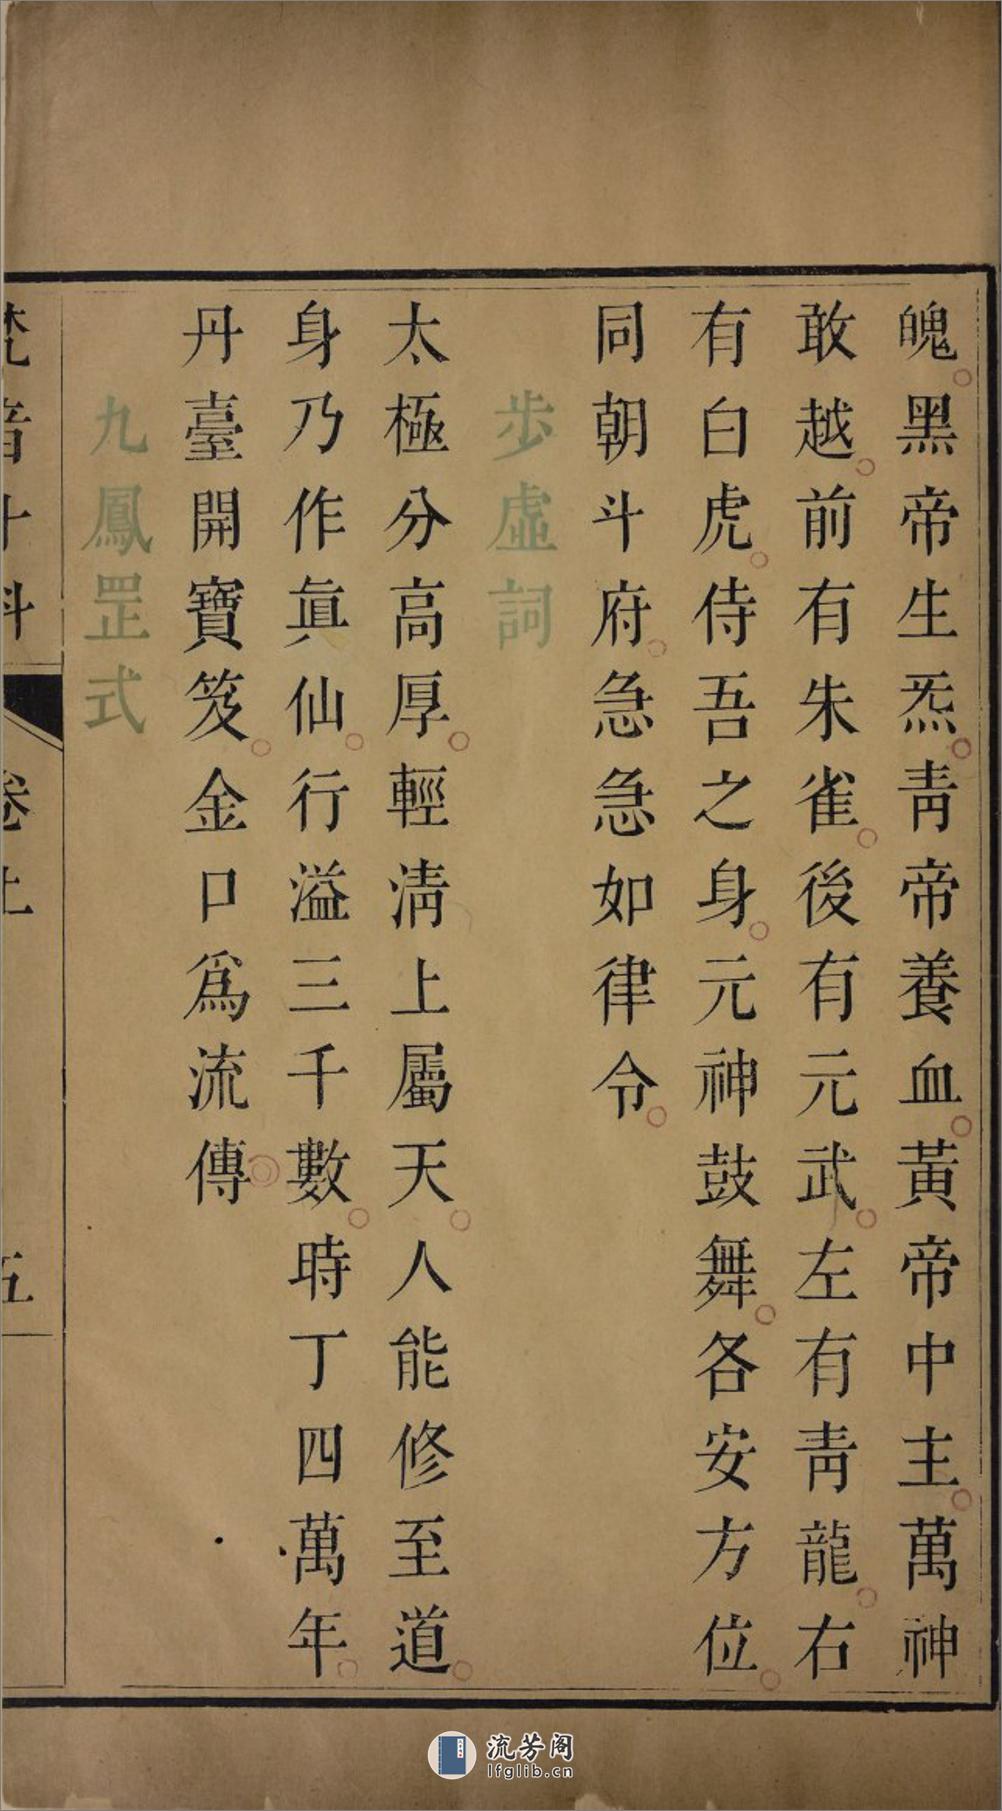 魄黑帝生炁青帝養血黃帝中主萬神
敢越前有朱雀後有元武左有青龍右
有白虎侍吾之身元神鼓舞各安方位
同朝斗府急急如律令
步虛詞
太極分高厚輕清上屬天人能修至道
身乃作眞仙行溢三千數時丁四萬年
丹臺開寶笈金口爲流傳
九鳳罡式
梵音斗科
卷上
五
流芳阁
lfglib.cn